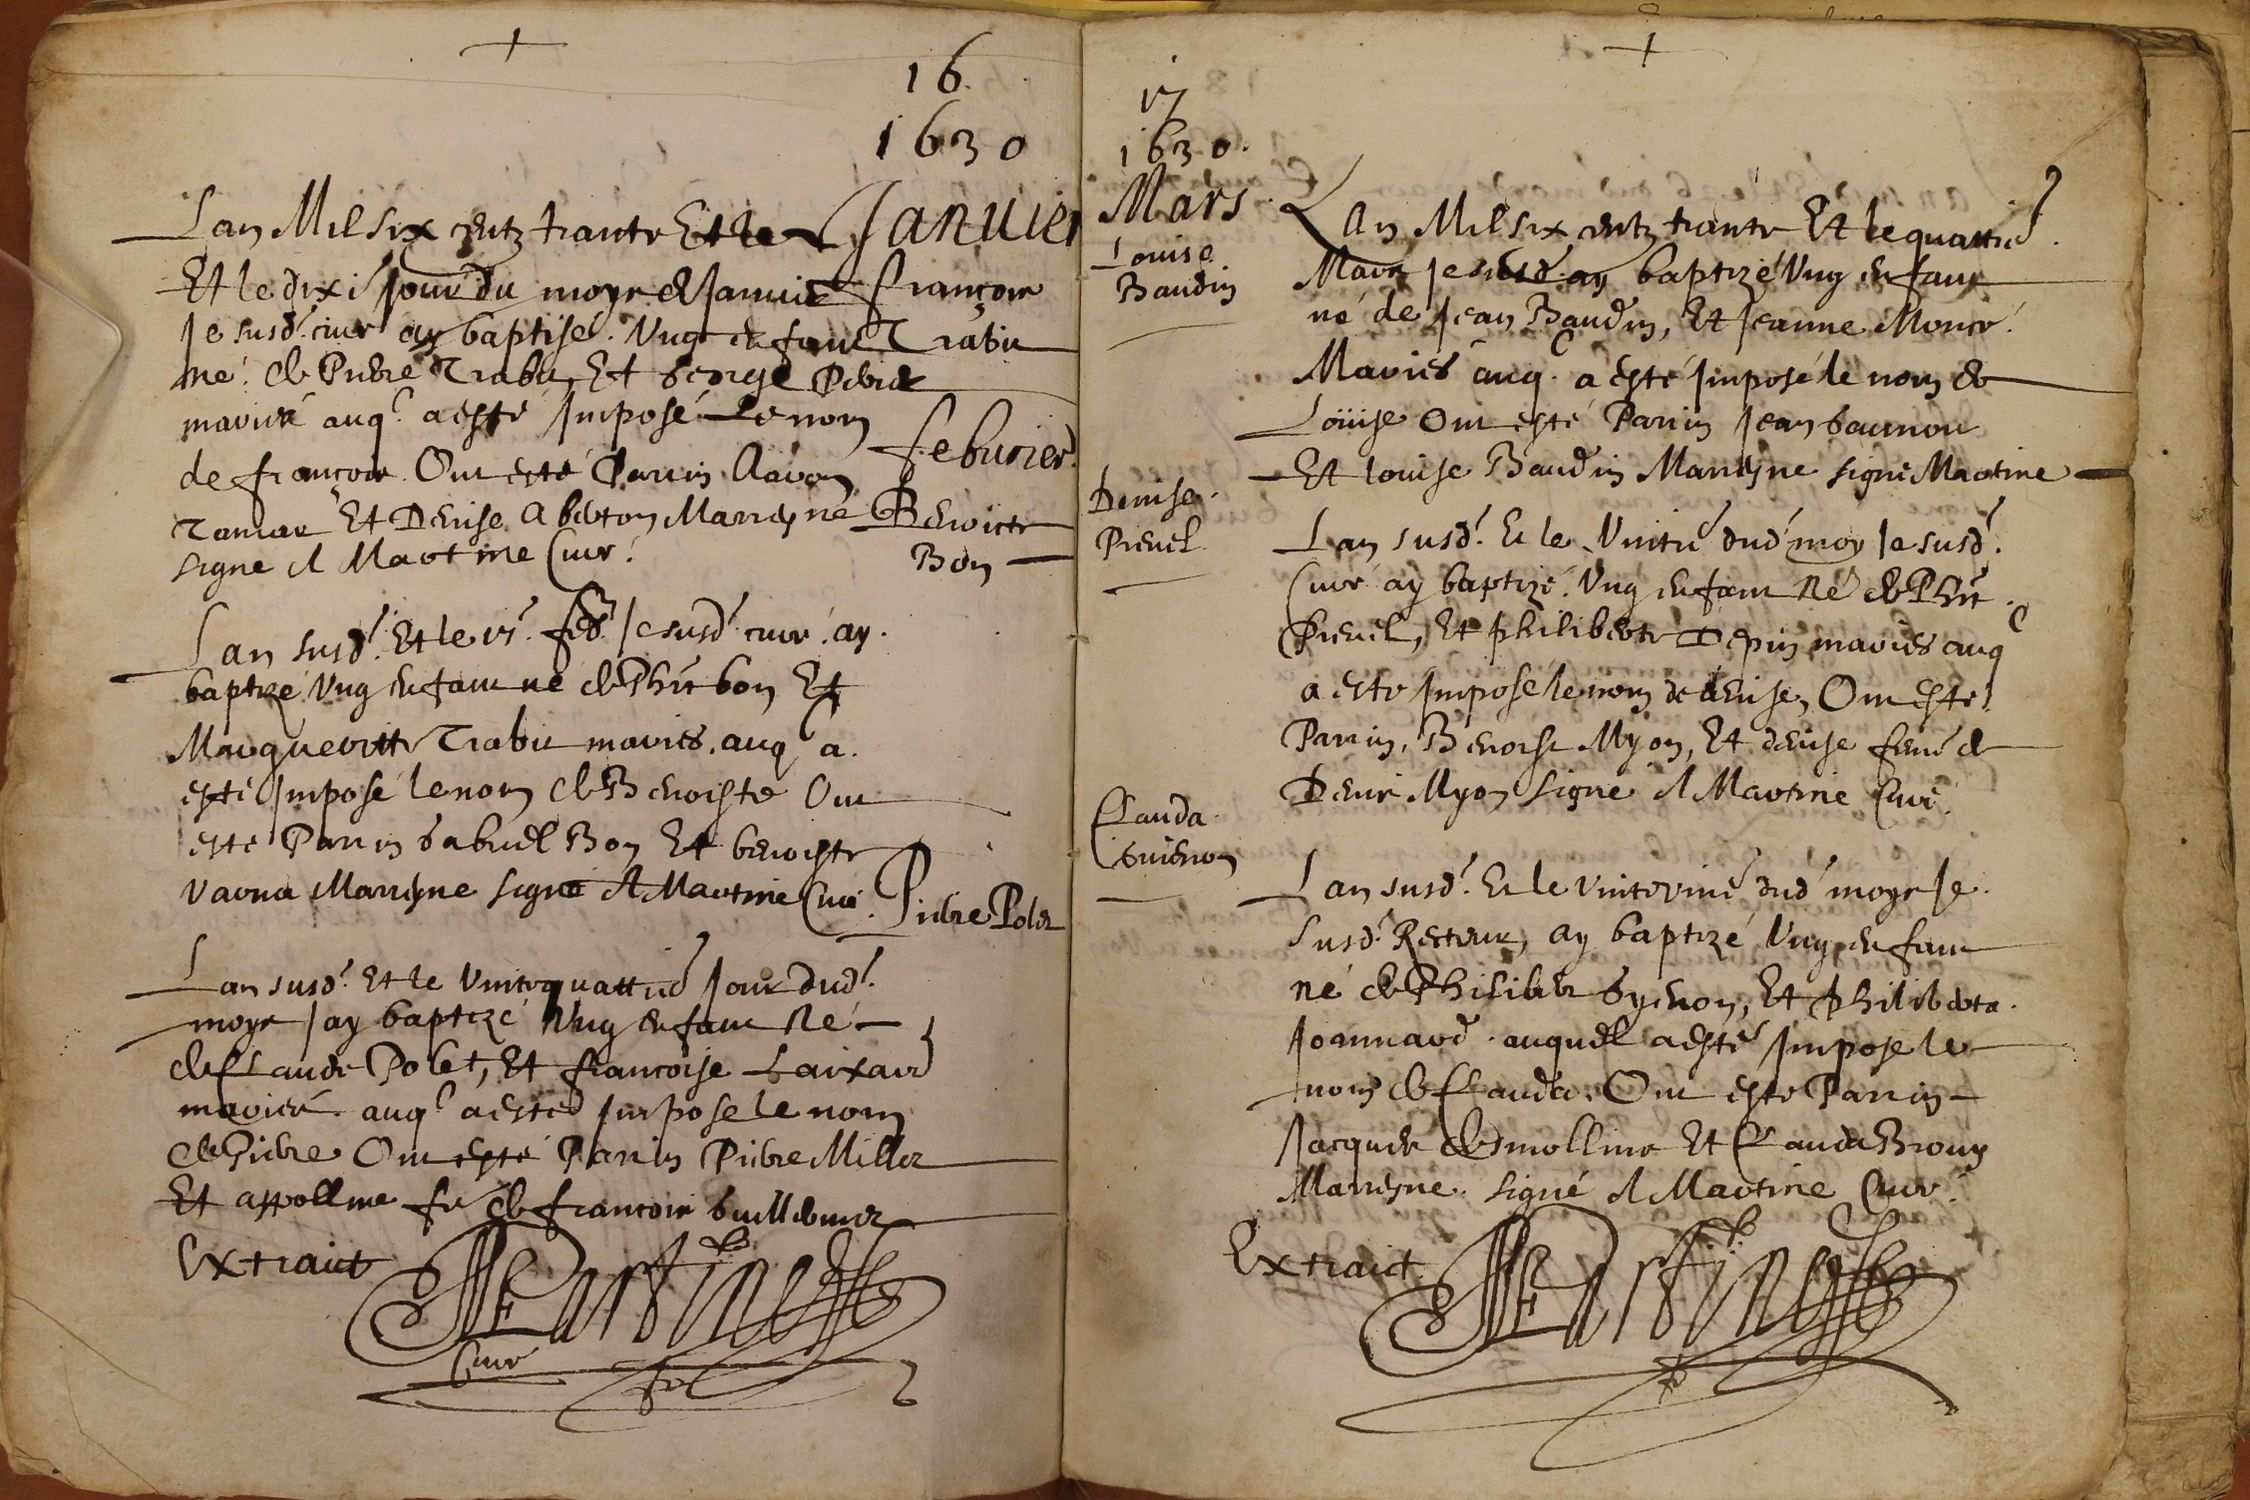 16.
1630
Lan Mil six centz trante Et le Januier
Et le dixie Jour du moys de Januie françoys
Je susd. cure ay baptisé. Vng enfant Trabu
né. de Pierre Trabu, Et George
mariés auq. a esté Imposé Le nom
de françoys. Ont esté Parrin
Et Denise Marreyne
signé A Martine Curé.
feburier
Benoicte
Bon
Lan susd. Et le 15. feb. Je susd. curé. ay.
baptizé Vng enfant né de Phit bon Et
Margueritte Trabu mariés. auq a.
esté Imposé le nom de Benoiste Ont
esté Parrin Gabriel Bon Et benoiste
Marreyne signé A Martine Curé.
Pierre Polet
Lan susd. Et le Vintequattrie Jour dud.
moys Jay baptizé Vng enfant Né
de Claude Polet, Et francoise
mariés. auq a esté Impose le nom
de Pierre Ont esté Parrin Pierre Millet
Et appolline fe de francois
Extraict
Martine
Curé
17
1630.
Mars
Louise
Baudin
Lan Mil six centz trante Et le quattrie.
Mars Je susd. ay baptizé Vng enfant
né de Jean Baudin, Et Jeanne
Mariés auq. a esté Imposé le nom de
Loüise Ont esté Parrin Jean
Et louise Baudin Marreyne signé Martine
Denise
Preuel
Lan susd. Et le Vintie dud moys Je susd.
Curé ay baptizé. Vng enfant Né de Phit
Preuel, Et philiberte Depin mariés auq
a esté Imposé le nom de denise, Ont esté
Parrin, Benoist Myon, Et denise feme de
Denis Myon signé A Martine Curé.
Clauda
Guienon
Lan susd. Et le dud moys Je
susd. Recteur, ay baptizé Vng enfant
né de Philibert Gyenon, Et philiberta
Joannard. auquel a esté Impose le
nom de Clauda. Ont esté Parrin
Jacques Et Clauda
Marreyne. signé A Martine Curé.
Extraict
Martine